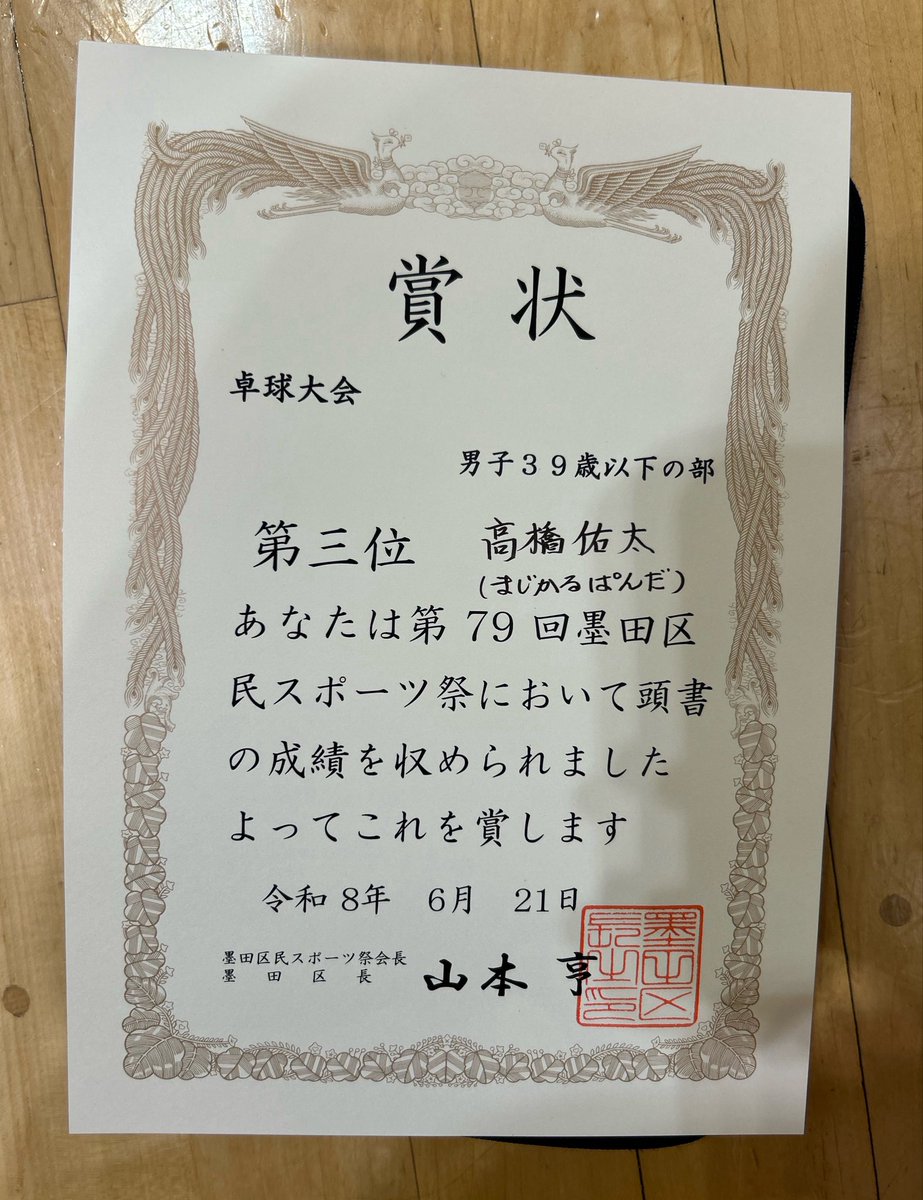 賞状
卓球大会
男子39歳以下の部
第三位 高橋佑太
(まじかるぱんだ)
あなたは第79回墨田区
民スポーツ祭において頭書
の成績を収められました
よってこれを賞します
令和8年 6月 21日
墨田区民スポーツ祭会長
墨田区長
山本亨
墨田区
長之印